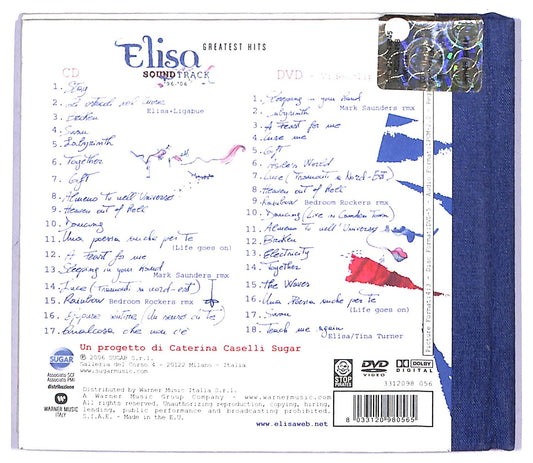 Elisa
GREATEST HITS
SOUNDTRACK
'96-'06
CD
1. Stay
2. Gli ostacoli del cuore
Elisa+Ligabue
3. Broken
4. Swan
5. Labyrinth
6. Together
7. Gift
8. Almeno tu nell'Universo
9. Heaven out of Hell
10. Dancing
11. Una poesia anche per te
(Life goes on)
12. A Feast for me
13. Sleeping in your Hand
Mark Saunders rmx
14. Luce (Tramonti a nord-est)
15. Rainbow Bedroom Rockers rmx
16. Eppure sentire (Un senso di te)
17. Qualcosa che non c'è
DVD
1. Sleeping in your Hand
Mark Saunders rmx
2. Labyrinth
3. A Feast for me
4. Cure me
5. Gift
6. Asile's World
7. Luce (Tramonti a Nord-Est)
8. Heaven out of Hell
9. Rainbow Bedroom Rockers rmx
10. Dancing (Live in Camden Town)
11. Almeno tu nell'Universo
12. Broken
13. Electricity
14. Together
15. The Waves
16. Una Poesia anche per te
(Life goes on)
17. Swan
18. Teach me again
Elisa/Tina Turner
Un progetto di Caterina Caselli Sugar
SUGAR
℗ © 2006 SUGAR S.r.l.
Galleria del Corso 4 - 20122 Milano - Italia
www.sugarmusic.com
Associato SCF
Associato PMI
distribuzione
WARNER MUSIC
ITALY
Distributed by Warner Music Italia S.r.l.
A Warner Music Group Company - www.warnermusic.com
All Rights Reserved. Unauthorizing copying, hiring,
lending, public performance and broadcasting prohibited.
S.I.A.E. - Made in the E.U.
www.elisaweb.net
STOP
PIRATES
DVD
VIDEO
DOLBY
DIGITAL
3312098 056
8 033120 980565
Picture Format:4:3 - Disc Format:DVD-5 - Audio Format: